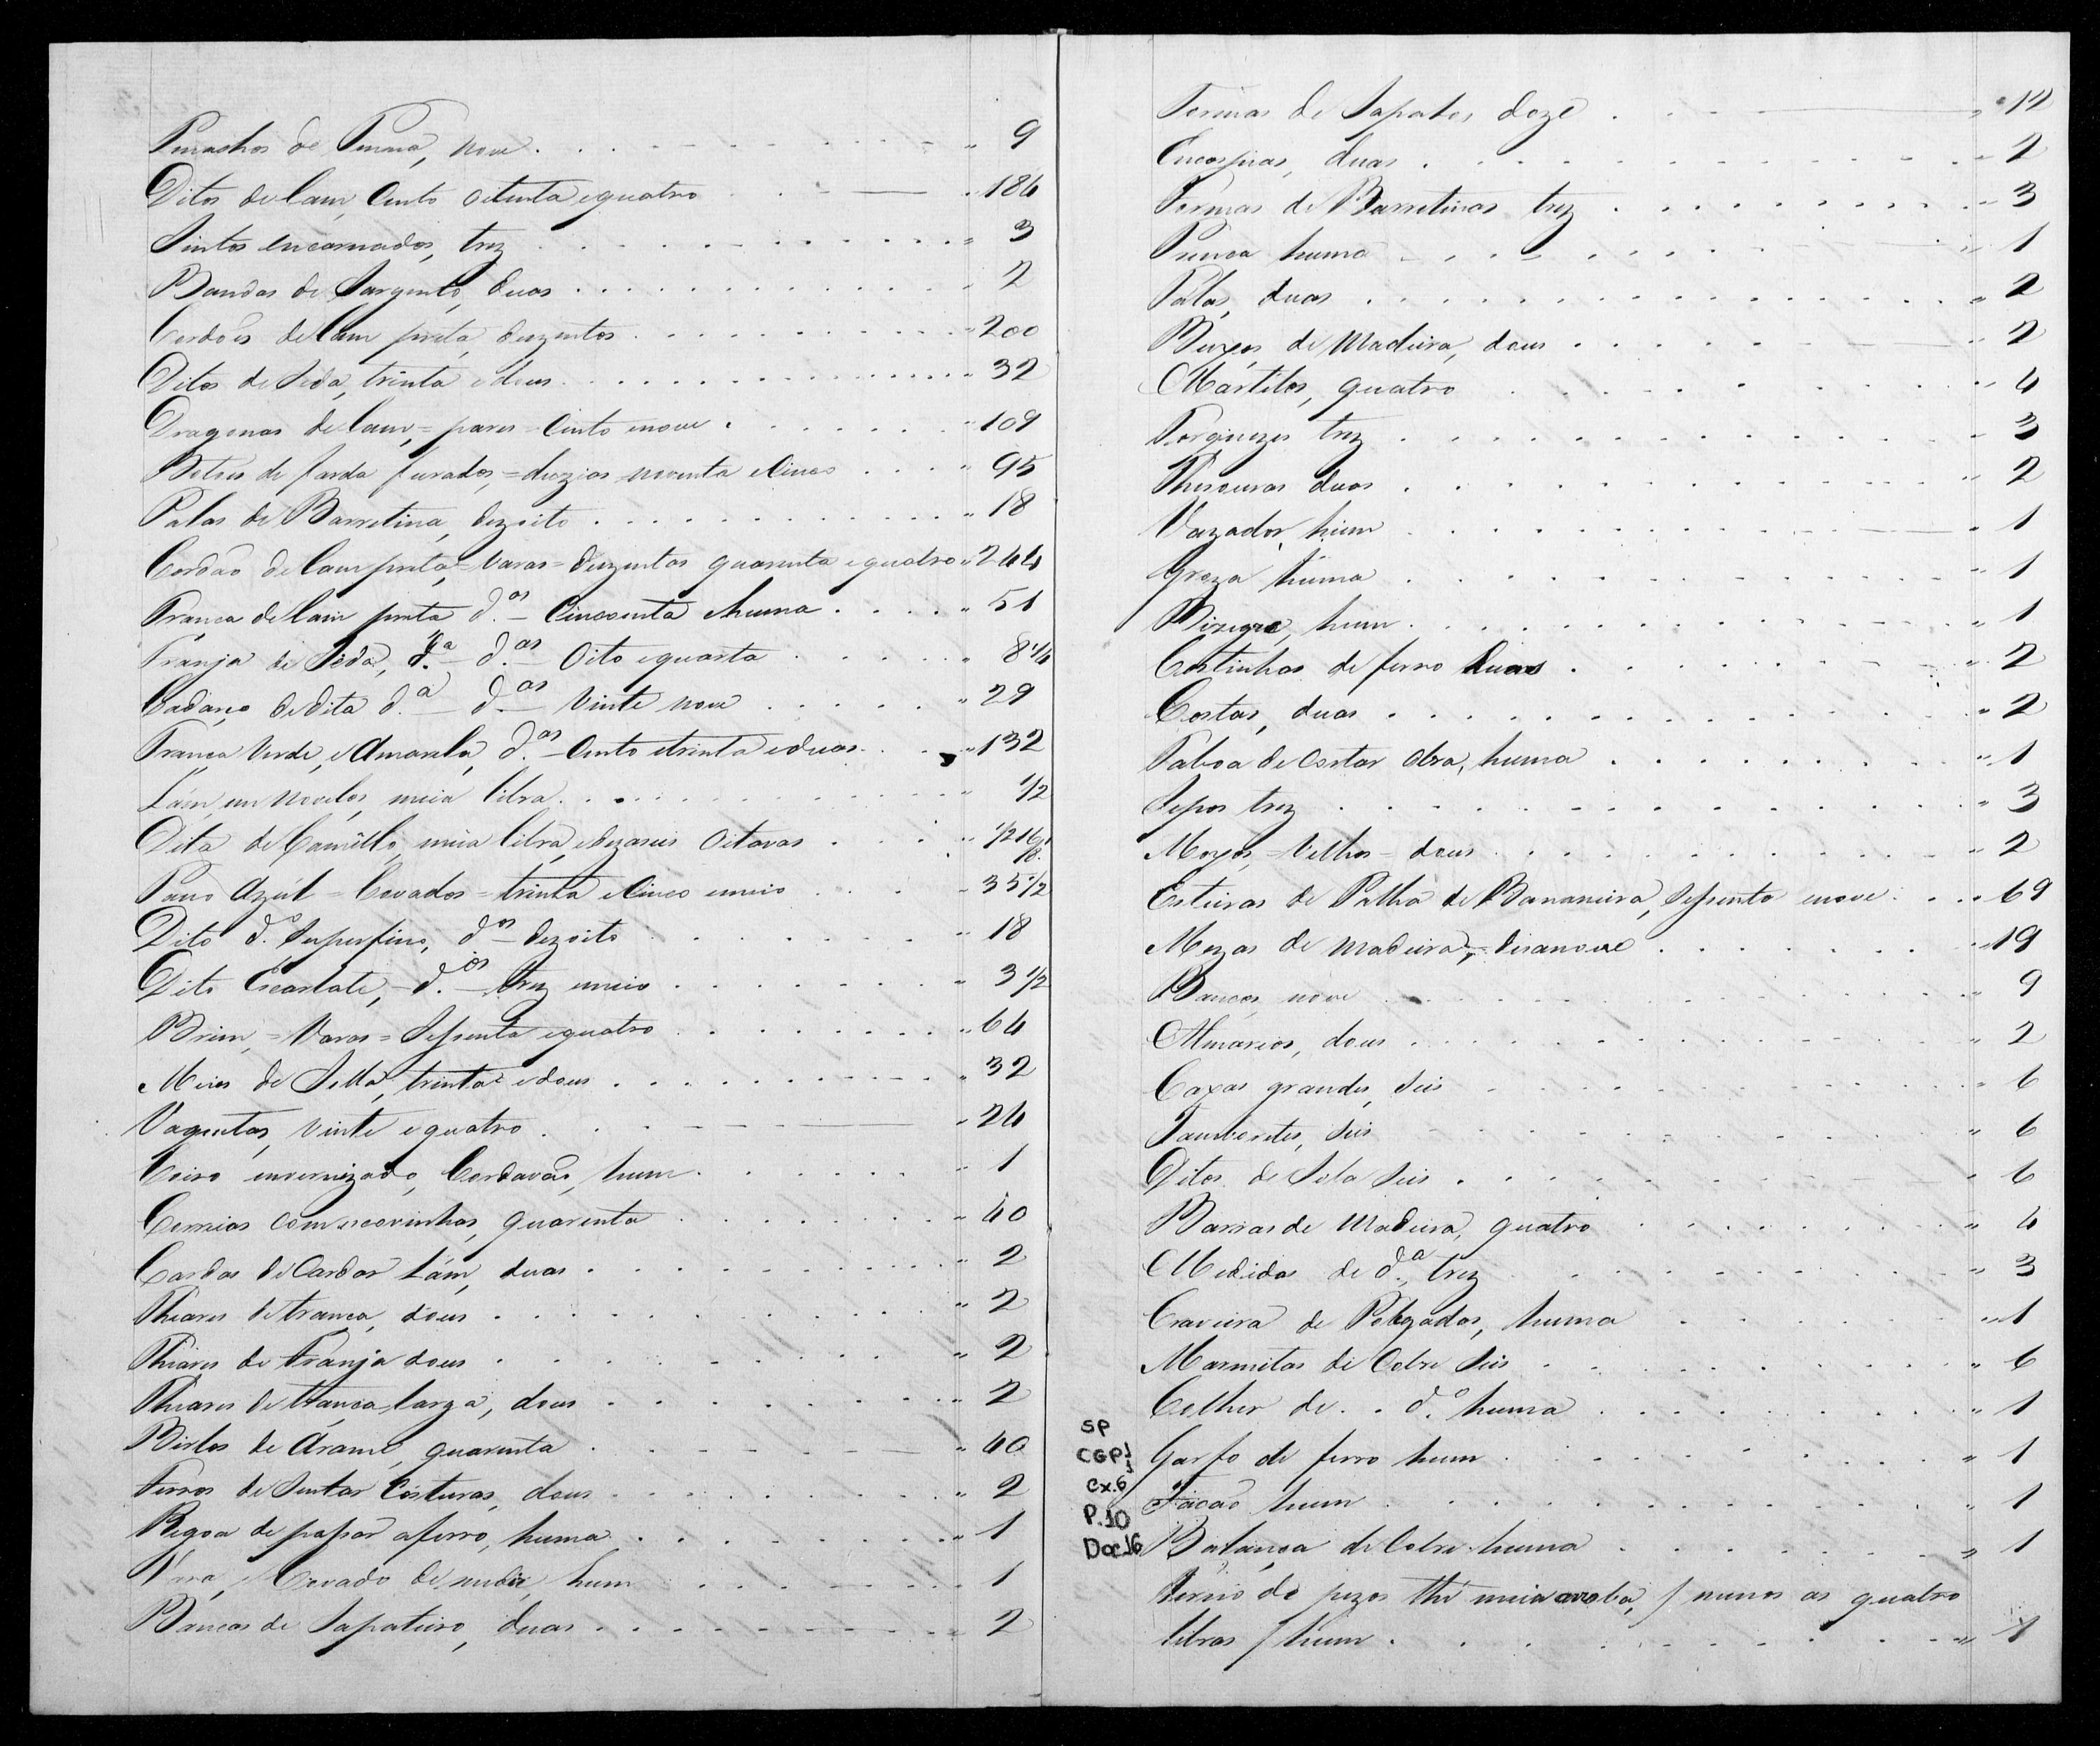 Penachos de Penna, nove 9
Ditos de lam Cento oitenta e quatro 184
Sintos encarnados, trez 3
Bandas de Sargento, duas 2
Cordoēs de lam preta, duzentos 200
Ditos de Seda, trinta e dous 32
Dragonas de lam, = pares = Cento e nove 109
Botoēs de farda furados, = duzias noventa e Cinco 95
Palas de Barretina, dezoito 18
Cordaõ de lam preta = Varas = duzentas quarenta e quatro 244
Trança de lam preta d.as - Cincoenta e huma 51
Franja de Seda, d.a - d.as - Oito e quarta 8 1/4
Cadarço de dita d.a - d.as - Vinte nove 29
Trança Verde, e Amarela, d.as - Cento e trinta e duas 132
Lãm, em novelos, meia libra 1/2
Dita de Camêllo, meia libra, e dezaseis Oitavas 1/2 16/8
Pano Azúl = Covados = trinta e Cinco e meio 35 1/2
Dito d.o Superfino, d.os - dezoito 18
Dito Escarlate, - d.os - trez e meio 3 1/2
Brim, = Varas = Sessenta e quatro 64
Meios de Solla, trinta e dous 32
Vaquetas, Vinte e quatro 24
Coiro invernizado, Cordavaõ, hum 1
Correias com escovinhas, quarenta 40
Cardas de Cardar Lãm, duas 2
Theares de trança, dous 2
Theares de Franja dous 2
Theares de trança larga, dous 2
Birlos de Arame, quarenta 40
Ferros de Sentar Costuras, dous 2
Regoa de passar a ferro, huma 1
Vara, e Covado de medir, hum 1
Bancas de Sapateiro, duas 2
Formas de Sapatos doze 12
Encospias, duas 2
Formas de Barretinas trez 3
Prença huma 1
Palas, duas 2
Buxos, de Madeira, dous 2
Martilos, quatro 4
Torquezes trez 3
Thesouras duas 2
Vazador, hum 1
Groza huma 1
Bizegre, hum 1
Costinhas de ferro duas 2
Costas, duas 2
Taboa de Cortar obra, huma 1
Sepos trez 3
Moxos, = Velhos = dous 2
Esteiras de Palha de Bananeira, Sessenta e nove 69
Mezas de Madeira, = disanove 19
Bancos nove 9
Almarios, dous 2
Caxas grandes, Seis 6
Tamboretes, Seis 6
Ditos de Sola Seis 6
Barras de Madeira, quatro 4
Medidas de d.a, trez 3
Craveira de Polegadas, huma 1
Marmitas de Cobre Seis 6
Colher de . . d.o huma 1
Garfo de ferro hum 1
Facaõ hum 1
Balança de Cobre huma 1
Terno de pezos thé meia aroba, / menos as quatro
libras / hum 1
SP
CGP1
Cx.6
P.10
Doc.16